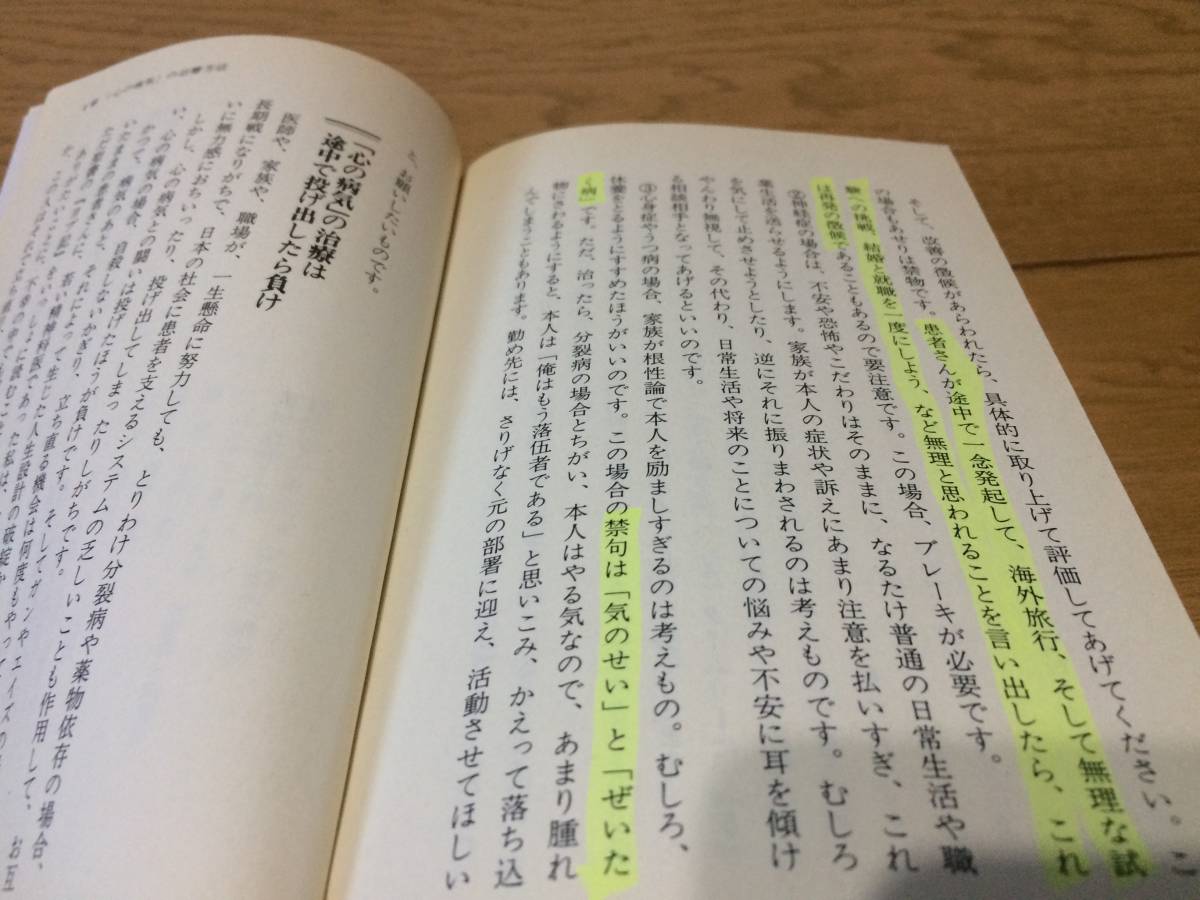 そして、改善の徴候があらわれたら、具体的に取り上げて評価してあげてください。こ
の場合もあせりは禁物です。患者さんが途中で一念発起して、海外旅行、そして無理な試
験への挑戦、結婚と就職を一度にしよう、など無理と思われることを言い出したら、これ
は再発の徴候であることもあるので要注意です。この場合、ブレーキが必要です。
②神経症の場合は、不安や恐怖やこだわりはそのままに、なるたけ普通の日常生活や職
業生活を送らせるようにします。家族が本人の症状や訴えにあまり注意を払いすぎ、これ
を気にして止めさせようとしたり、逆にそれに振りまわされるのは考えものです。むしろ
やんわり無視して、その代わり、日常生活や将来のことについての悩みや不安に耳を傾け
る相談相手となってあげるといいのです。
③心身症やうつ病の場合、家族が根性論で本人を励ましすぎるのは考えもの。むしろ、
休養をとるようにすすめたほうがいいのです。この場合の禁句は「気のせい」と「ぜいた
く病」です。ただ、治ったら、分裂病の場合とちがい、本人はやる気なので、あまり腫れ
物にさわるようにすると、本人は「俺はもう落伍者である」と思いこみ、かえって落ち込
んでしまうこともあります。勤め先には、さりげなく元の部署に迎え、活動させてほしい
「心の病気」の治療方法
と、お願いしたいものです。
「心の病気」の治療は
途中で投げ出したら負け
医師や、家族や、職場が、一生懸命に努力しても、とりわけ分裂病や薬物依存の場合、
長期戦になりがちで、日本の社会に患者を支えるシステムの乏しいことも作用して、お互
いに無力感におちいったり、投げ出してしまったりしがちです。
しかし、心の病気との闘いは投げたほうが負けです。そしてガンやエイズの
い、心の病気の場合、自殺しないかぎり、立ち直る機会は何度もやって
かつて、病気のあと、それによって生じた人生設計の破綻か
いたままの患者さんに、若い精神科医であった私は、